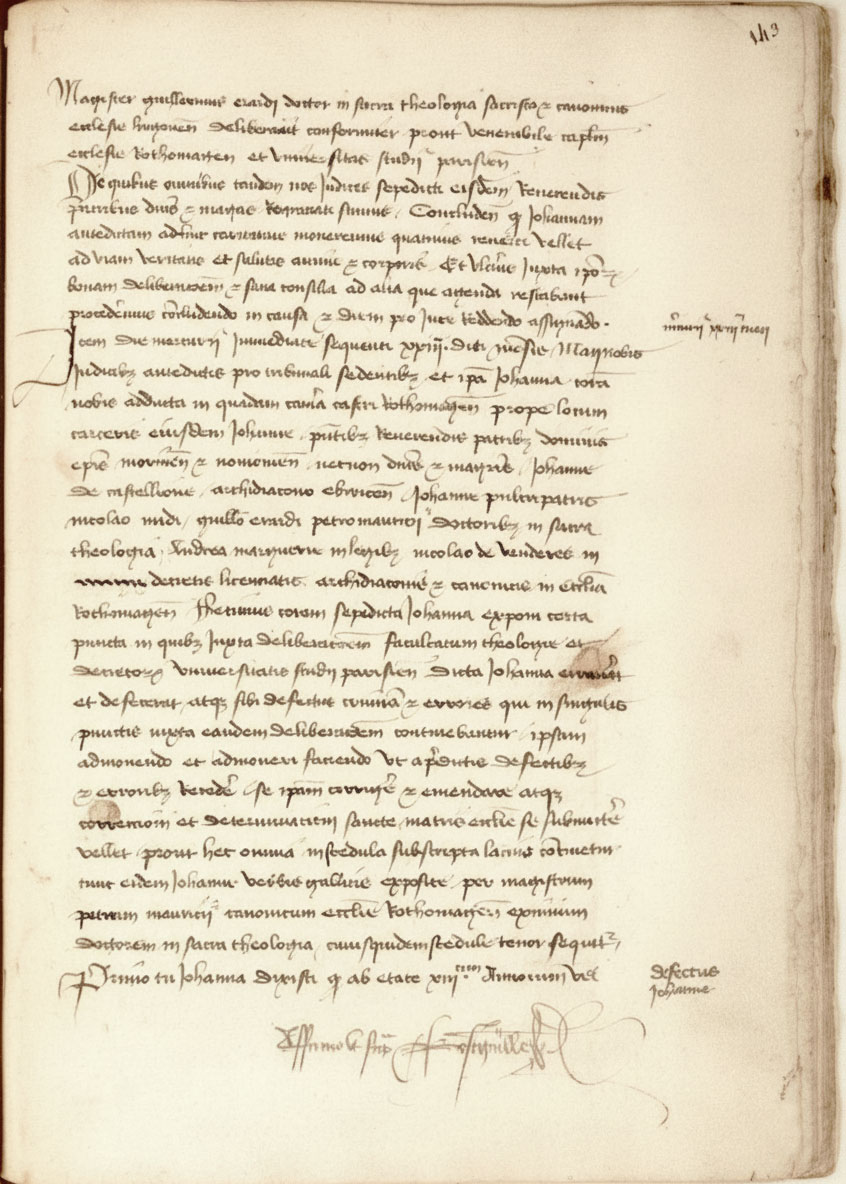 143
Magister guillermus erardi doctor in sacra theologia sacrista ⁊ canonicus
ecclesie lingonen deliberauit conformiter prout venerabile capłm
ecclesie Rothomagen et vniuersitas studij parisien
De quibus omnibus tandem nos Judices sepedicti eisdem Reuerendis
pr̄ibus dnis ⁊ magris Regraciati sumus. Concluden̄ qꝫ Johannam
antedictam adhuc caritatiue moneremus quatinus reuerti vellet
ad viam veritatis et salutis anime ⁊ corporis. Et vlteriꝰ Juxta ipoꝝ
bonam deliberacōem ⁊ sana consilia ad alia que agenda restabant
procederemus concludendo in causa ⁊ diem pro Jure Reddendo assignādo.
mercurij xxiij maij
Item die mercurij Immediate sequenti xxiij. dicti mēsis Maij nobis
Judicibꝫ antedictis pro tribunali sedentibꝫ et ipā Johanna corā
nobis adducta in quadam cam̄a castri Rothomagen̄ prope locum
carceris eiusdem Johanne. pn̄tibꝫ Reuerendis patribꝫ dominis
ep̄is morinen̄ ⁊ nouiomen̄. necnon dnis ⁊ magris. Johanne
de castellione. archidiacono ebroicen̄. Johanne pulcripatris
nicolao midi. guillō erardi petro mauricij doctoribꝫ in sacra
theologia. Andrea marguerie in legibꝫ nicolao de venderes in
decretis licenciatis. archidiaconis ⁊ canonicis in ecclīa
Rothomagen̄ fecimus coram sepedicta Johanna exponi certa
puncta in quibꝫ Juxta deliberacōem facultatum theologie et
decretoꝝ vniuersitatis studij parisien̄ dicta Johanna errauerat
et defecerat atqꝫ sibi defectus crimina ⁊ errores qui in singulis
punctis iuxta eandem deliberacōem continebantur. ipsam
admonendo et admoneri faciendo vt a p̄dictis defectibꝫ
⁊ erroribꝫ Recedēꝰ. se ipsam corrigeꝰ ⁊ emendare atqꝫ
correctioni et determinacioni sancte matris ecclīe se submitteꝰ
vellet. prout hec omnia in scedula subscripta lacius cōtinetur.
tunc eidem Johanne verbis gallicis exposite. per magistrum
petrum mauricij canonicum ecclīe Rothomagen̄ eximium
doctorem in sacra theologia, cuiusquidem scedule tenor sequitꝛ,
defectus
Johanne
Primo tu Johanna dixisti qꝫ ab etate xiij annorum vel
Affirmo vt supᵃ